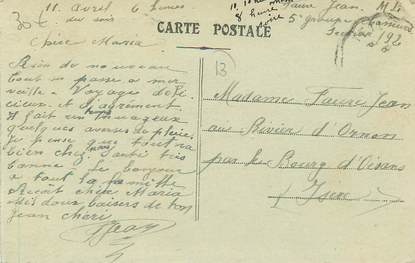 30€
11 avril 6 heures
du soir
CARTE POSTALE
8 heure
Faure Jean. M
5e groupe
192
13
Chère Maria
Rien de nouveau
tout se passe a mer
veille. Voyage déli
cieux. et d'agrément
il fait un temps nuageux
quelques averses de pluie.
je pense que tout va
bien chez. Santé très
bonne. le bonjour
a toute la famille
Reçoit chère Maria
les doux baisers de ton
Jean chéri
Jean
Madame Faure Jean
au Rivier d'Ornon
par le Bourg d'Oisans
(Isère)